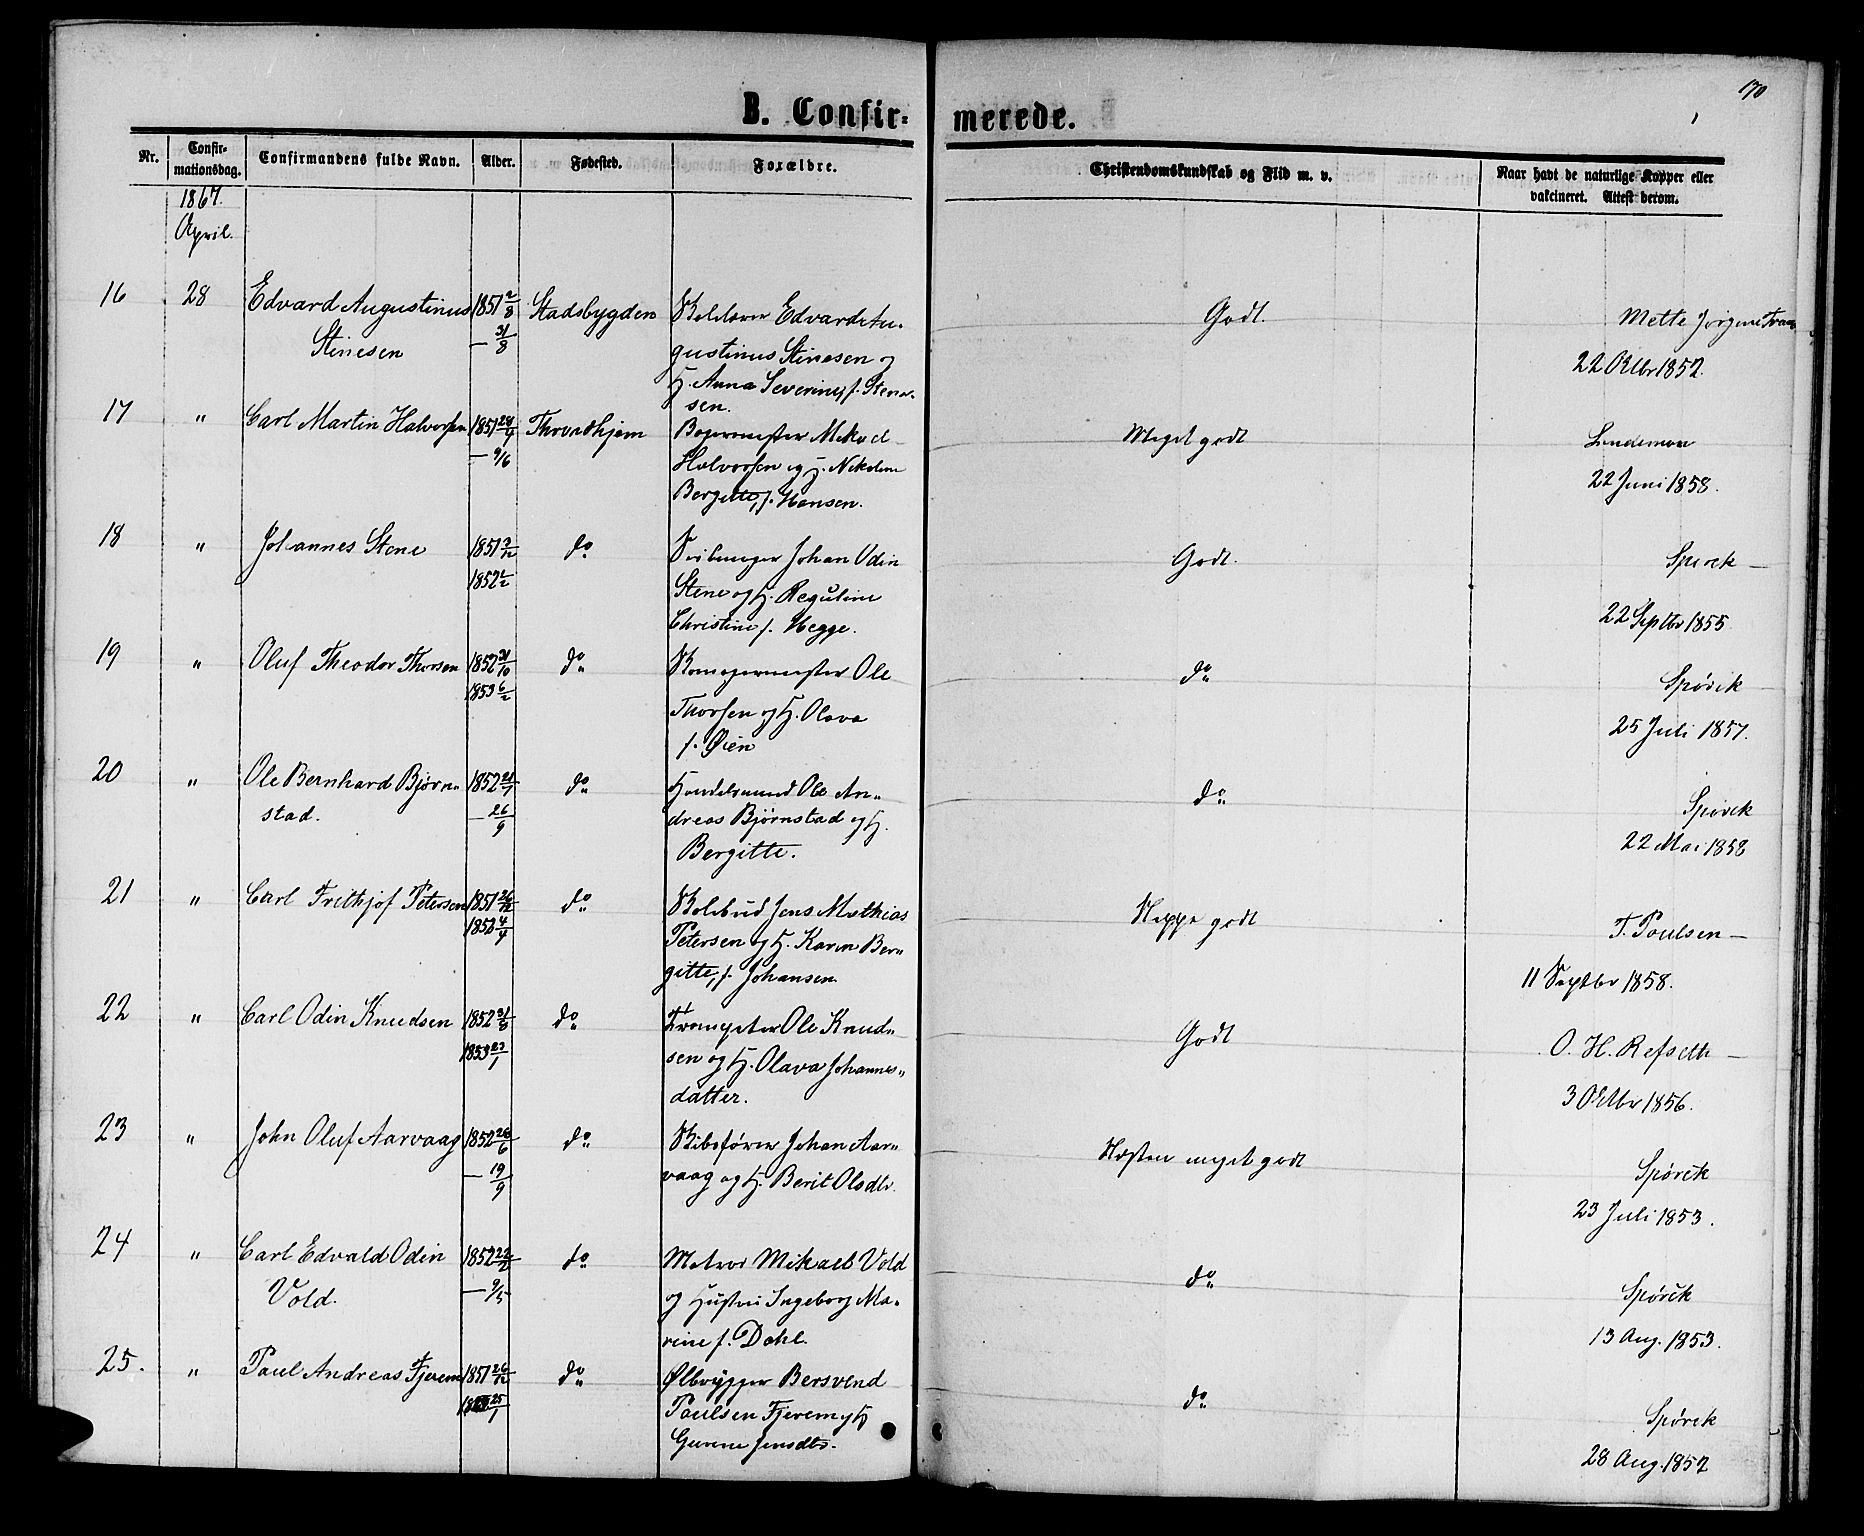 170
B. Confir-
merede.
Nr.
Confir-
mationsdag.
Confirmandens fulde Navn.
Alder.
Fødested.
Forældre.
Christendomskundskab og Flid m. v.
Naar havt de naturlige Kopper eller
vakcineret. Attest derom.
1867.
April.
16 28 Edvard Augustinus 1851 2/8 Stadsbygden Edvard Au-
Stinesen — 31/8 gustinus Stinesen og
H. Anna Severine, f. Stene-
sen.
Godt.
Mette Jørgine
22 Oktbr 1852.
17 " Carl Martin Halvorsen 1851 28/4 Throndhjem
— 9/6 Halvorsen og H. Nikoline
Bergitte, f. Hansen.
Meget godt
Lindeman
22 Juni 1858.
18 " Johannes Stene 1851 3/12 do Johan Odin
1852 Stene og H. Reguline
Christine f. Hegge.
Godt.
Spørck —
22 Septbr 1855
19 " Oluf Theodor Thorsen 1852 31/10 do Ole
1853 6/2 Thorsen og H. Olava
f. Øien
do
Spørck
25 Juli 1857.
20 " Ole Bernhard Bjørn- 1852 21/7 do Handelsmand Ole An-
stad. — 26/9 dreas Bjørnstad og H.
Bergitte.
do
Spørck
22 Mai 1858
21 " Carl Frithjof Petersen 1851 26/12 do Jens Mathias
1852 4/4 Petersen og H. Karen Ber-
gitte, f. Johansen
Neppe godt
T. Poulsen —
11 Septbr 1858.
22 " Carl Odin Knudsen 1852 31/8 do Trompeter Ole Knud-
1853 23/1 sen og H. Olava Johannes-
datter.
Godt
O. H. Refseth —
3 Oktbr 1856.
23 " John Oluf Aarvaag 1852 26/6 do Johan Aar-
— 19/9 vaag og H. Berit Olsdtr.
Næsten meget godt
Spørck
23 Juli 1853.
24 " Carl Edvald Odin 1852 22/2 do Matros Mikael Vold
Vold. — 9/5 og Hustru Ingeborg Ma-
rine f. Dahl.
do
Spørck
13 Aug. 1853.
25. " Paul Andreas Fjerem 1851 26/12 do Ølbrygger Bersvend
25/1 Paulsen Fjerem og H.
Jensdtr.
do
Spørck
28 Aug. 1852